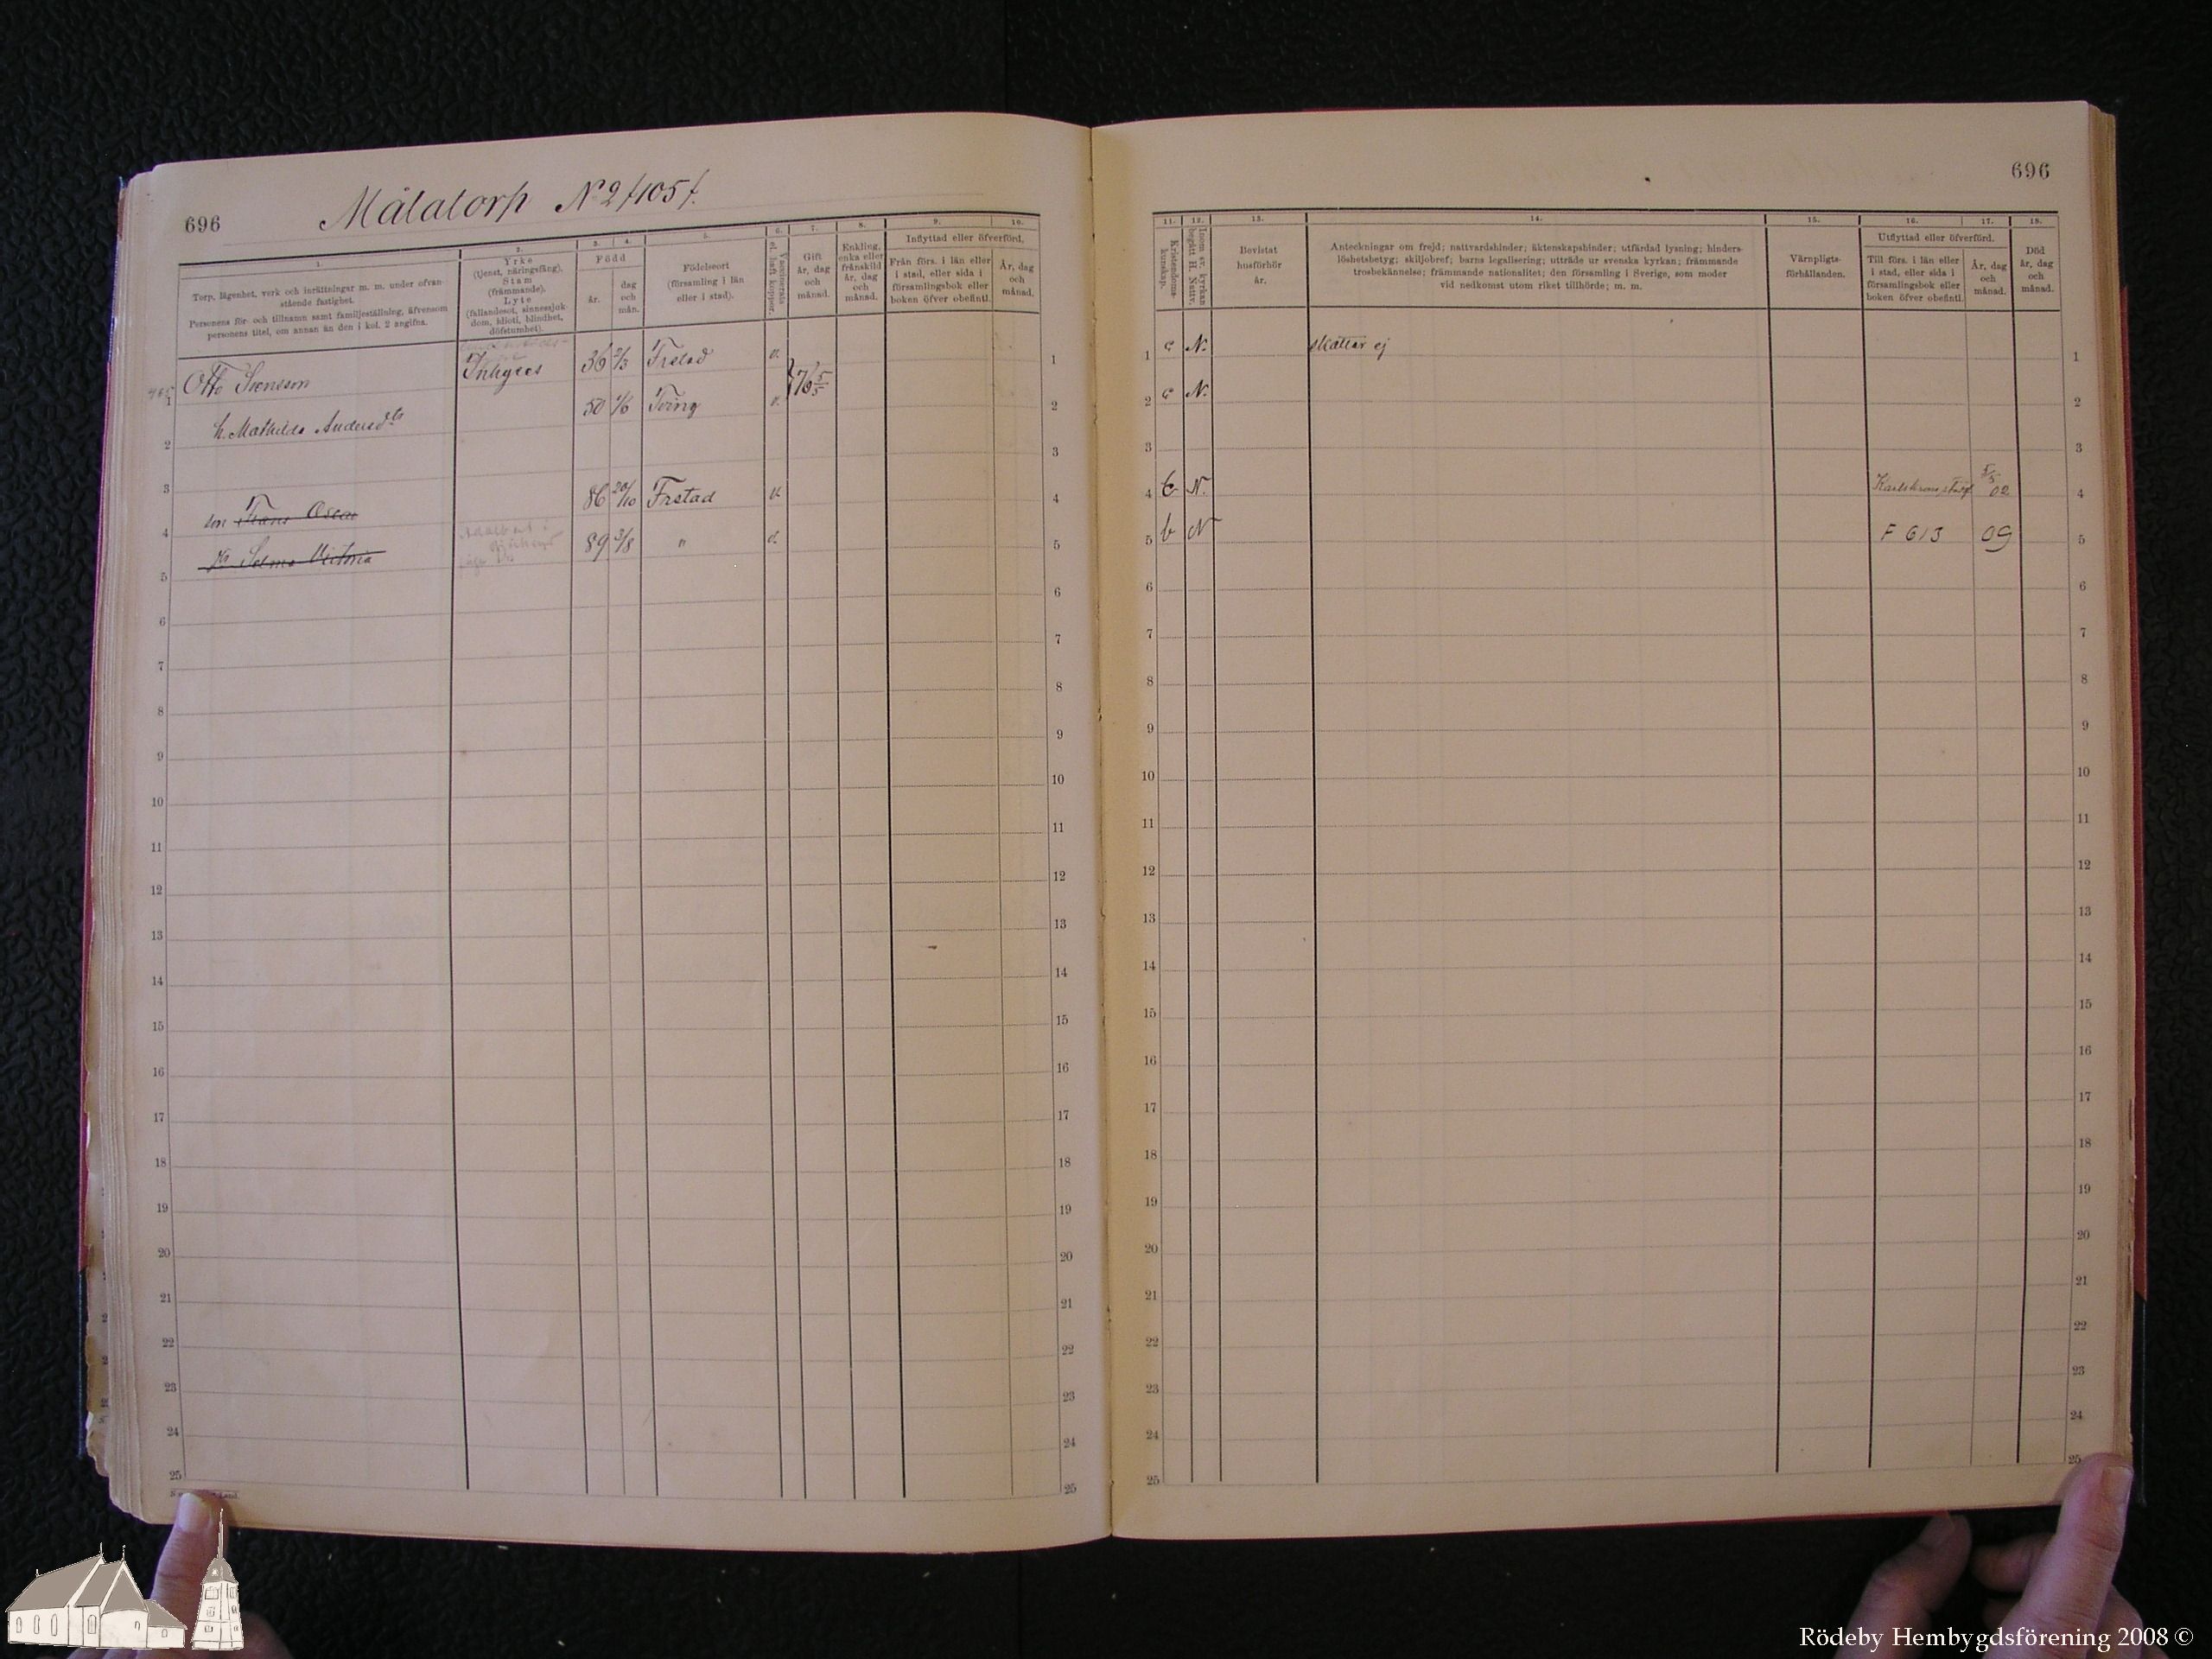 696
Målatorp № 2 /105/.
1.
Torp, lägenhet, verk och inrättningar m. m. under ofvan
stående fastighet.
Personens för- och tillnamn samt familjeställning, äfvensom
personens titel, om annan än den i kol. 2 angifna.
2.
Yrke
(tjenst, näringsfång).
Stam
(främmande).
Lyte
(fallandesot, sinnessjuk-
dom, idioti, blindhet,
döfstumhet).
3. 4.
Född
år.
dag
och
mån.
5.
Födelseort
(församling i län
eller i stad).
6.
Vaccinerade
el. haft koppor.
7.
Gift
år, dag
och
månad.
8.
Enkling,
enka eller
frånskild
år, dag
och
månad.
9. 10.
Inflyttad eller öfverförd,
Från förs. i län eller
i stad, eller sida i
församlingsbok eller
boken öfver obefintl.
År, dag
och
månad.
1 Otto Svensson Inhyses 36 2/3 Frstad v. 76 5/5 1
2 h. Mathilda Andersdtr 50 1/6 Tving v. 2
3 3
4 son Frans Oscar 86 20/10 Frstad v. 4
5 Selma Victoria 89 3/8 " v. 5
6 6
7 7
8 8
9 9
10 10
11 11
12 12
13 13
14 14
15 15
16 16
17 17
18 18
19 19
20 20
21 21
22 22
23 23
24 24
25 25
696
11.
Kristendoms-
kunskap.
12.
Inom sv. kyrkan
begått H. Nattv.
13.
Bevistat
husförhör
år.
14.
Anteckningar om frejd; nattvardshinder; äktenskapshinder; utfärdad lysning; hinders-
löshetsbetyg; skiljobref; barns legalisering; utträde ur svenska kyrkan; främmande
trosbekännelse; främmande nationalitet; den församling i Sverige, som moder
vid nedkomst utom riket tillhörde; m. m.
15.
Värnpligts-
förhållanden.
16. 17.
Utflyttad eller öfverförd.
Till förs. i län eller
i stad, eller sida i
församlingsbok eller
boken öfver obefintl.
År, dag
och
månad.
18.
Död
år, dag
och
månad.
1 c N. skattar ej 1
2 c N. 2
3 3
4 N. 5/5 02 4
5 b N F 613 09 5
6 6
7 7
8 8
9 9
10 10
11 11
12 12
13 13
14 14
15 15
16 16
17 17
18 18
19 19
20 20
21 21
22 22
23 23
24 24
25 25
Rödeby Hembygdsförening 2008 ©